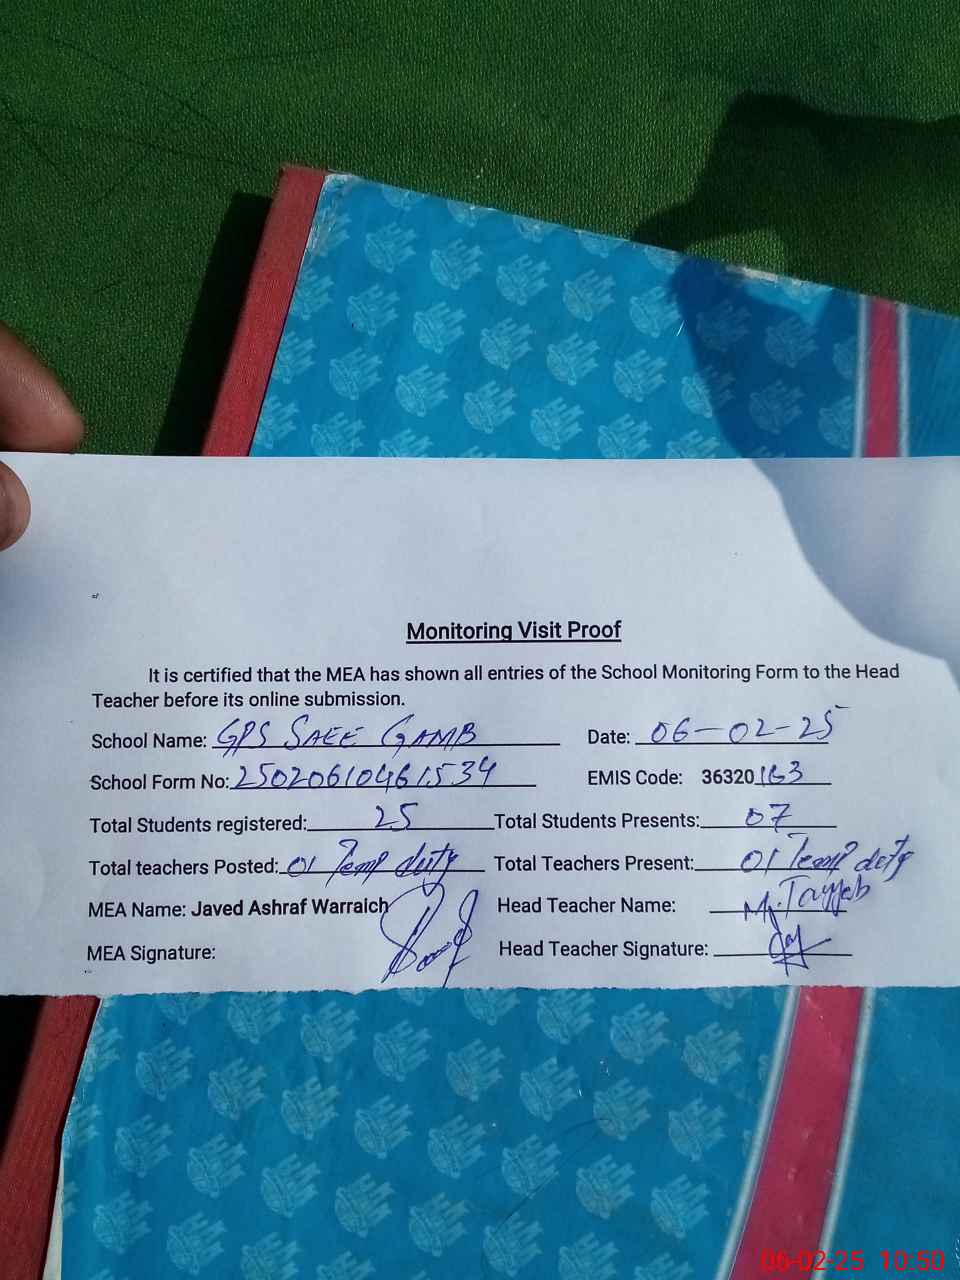 Monitoring Visit Proof
It is certified that the MEA has shown all entries of the School Monitoring Form to the Head
Teacher before its online submission.
School Name: GPS SAEE GAMB Date: 06-02-25
School Form No: 25020610461534 EMIS Code: 36320163
Total Students registered: 25 Total Students Presents: 07
Total teachers Posted: 01 Temp duty Total Teachers Present: 01 Temp duty
MEA Name: Javed Ashraf Warraich Head Teacher Name: M. Tayyab
MEA Signature: Head Teacher Signature:
06-02-25 10:50